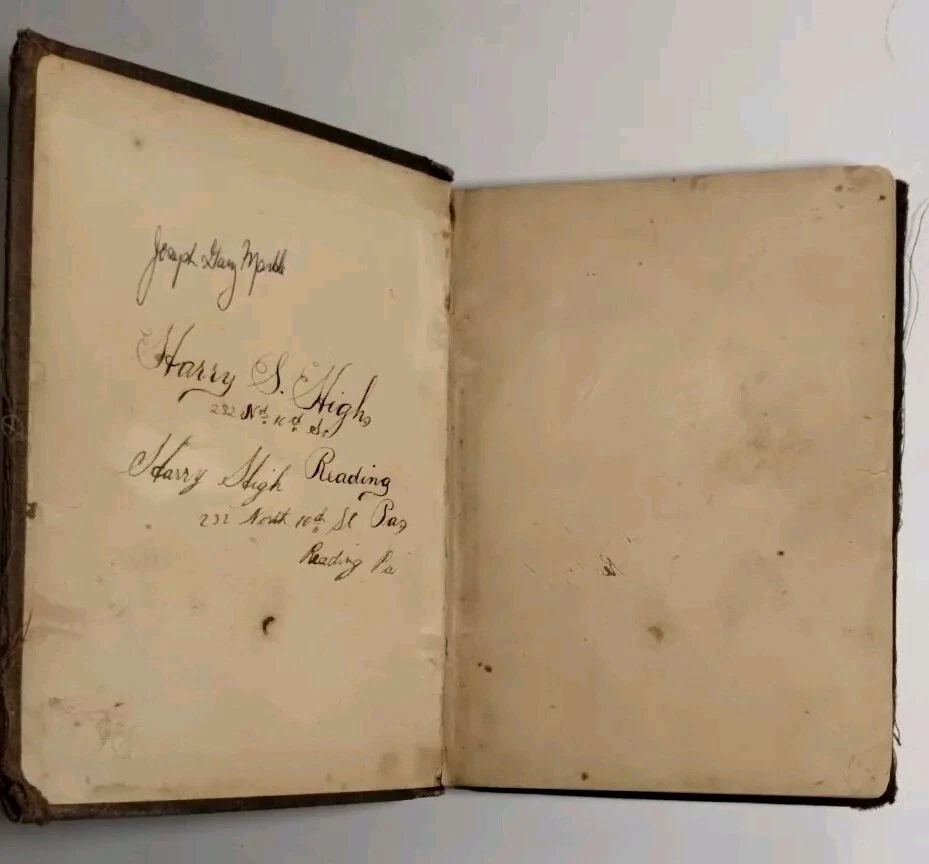 Joseph Gary
Harry S. High,
232 Nth 10th St
Harry High Reading
232 North 10th St Pa,
Reading Pa